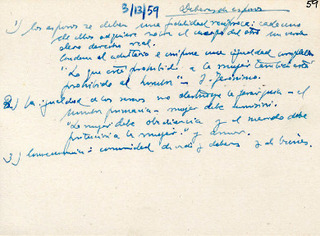 3/13/59 Deberes de esposos 59
1) los esposos se deben una fidelidad recíproca; cada uno
de ellos adquiere sobre el cuerpo del otro un verda
dero derecho real.
Condena el adulterio e impone una igualdad completa
"Lo que está prohibido a la mujer también está
prohibido al hombre" - S. Jerónimo.
2) La igualdad de los sexos no destruye la jerarquía - el
hombre primacía - mujer debe sumisión.
"La mujer debe obediencia y el marido debe
protección a la mujer" y amor.
3) comunidad de vida y deberes y de bienes.